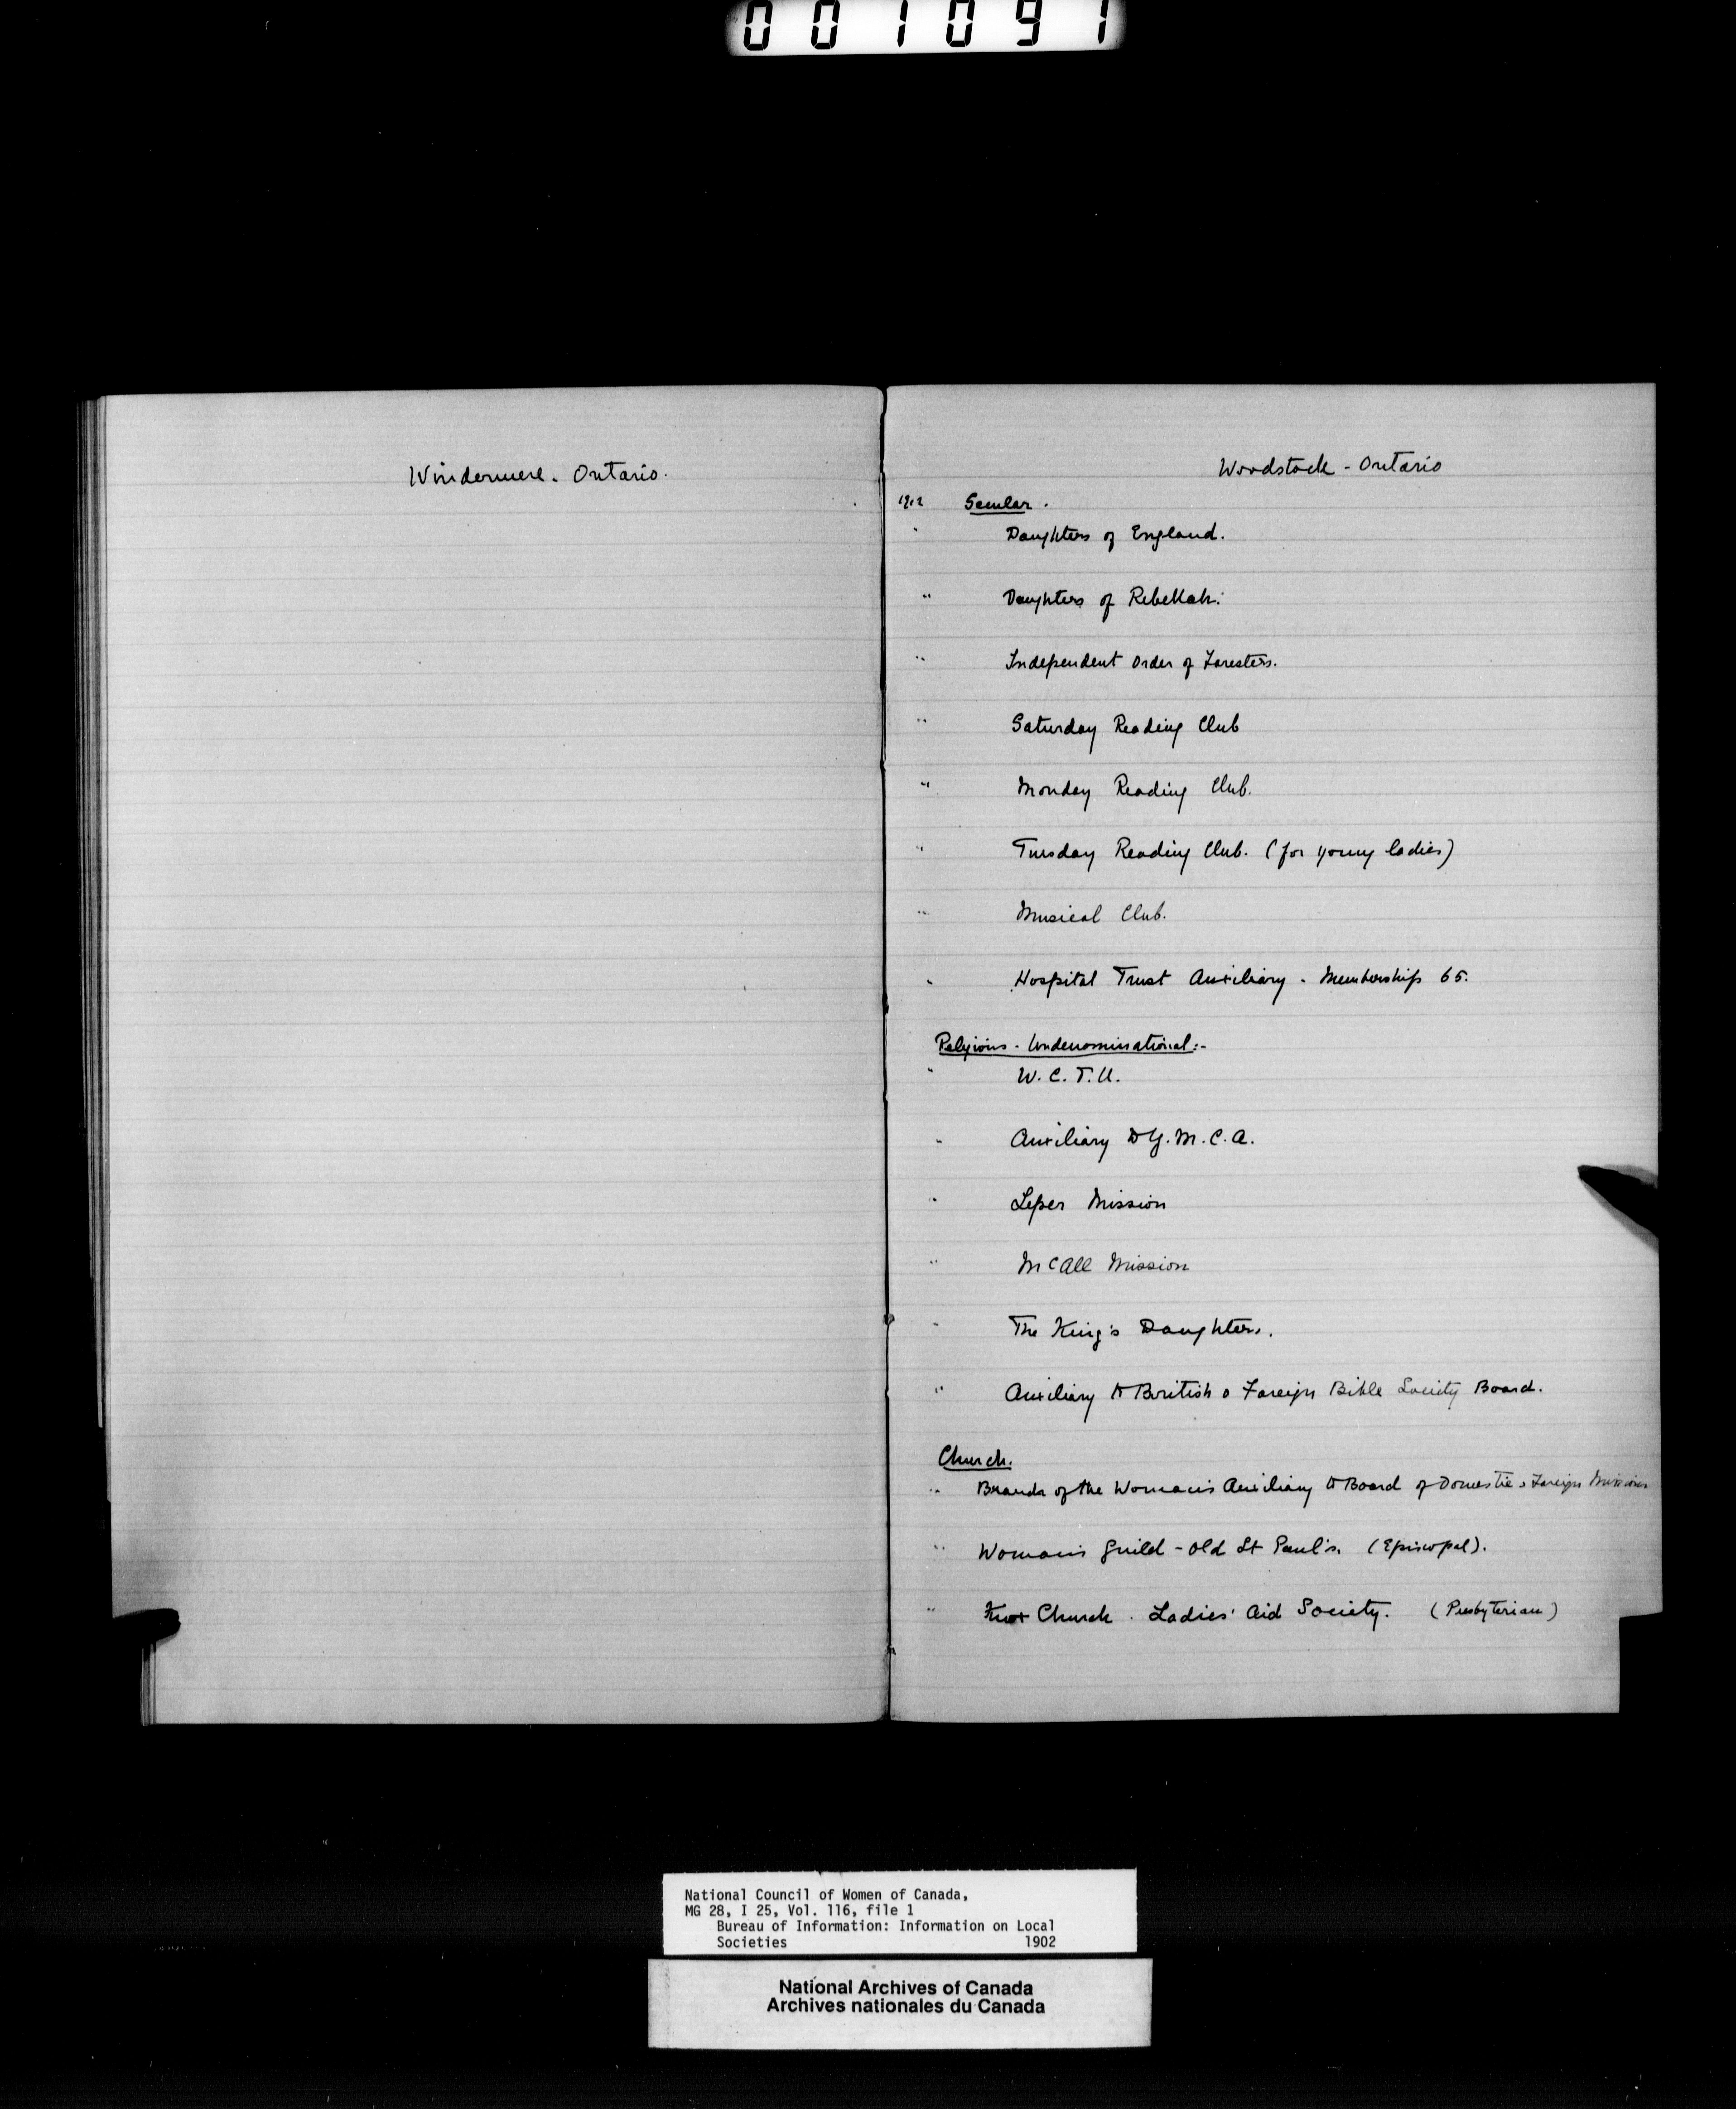 001091
Windermere. Ontario.
Woodstock - Ontario
1902 Secular.
" Daughters of England.
" Daughters of Rebekah.
" Independent Order of Foresters.
" Saturday Reading Club
" Monday Reading Club.
" Tuesday Reading Club. (for young ladies)
" Musical Club.
" Hospital Trust Auxiliary - Membership 65.
Religious - Undenominational:-
" W.C.T.U.
" Auxiliary to Y.M.C.A.
" Leper Mission
" McCall Mission
" The King's Daughters.
" Auxiliary to British & Foreign Bible Society Board.
Church.
" Branch of the Woman's Auxiliary to Board of Domestic & Foreign Missions
" Woman's Guild - Old St Paul's. (Episcopal).
" Knox Church. Ladies' Aid Society. (Presbyterian)
National Council of Women of Canada,
MG 28, I 25, Vol. 116, file 1
Bureau of Information: Information on Local
Societies 1902
National Archives of Canada
Archives nationales du Canada